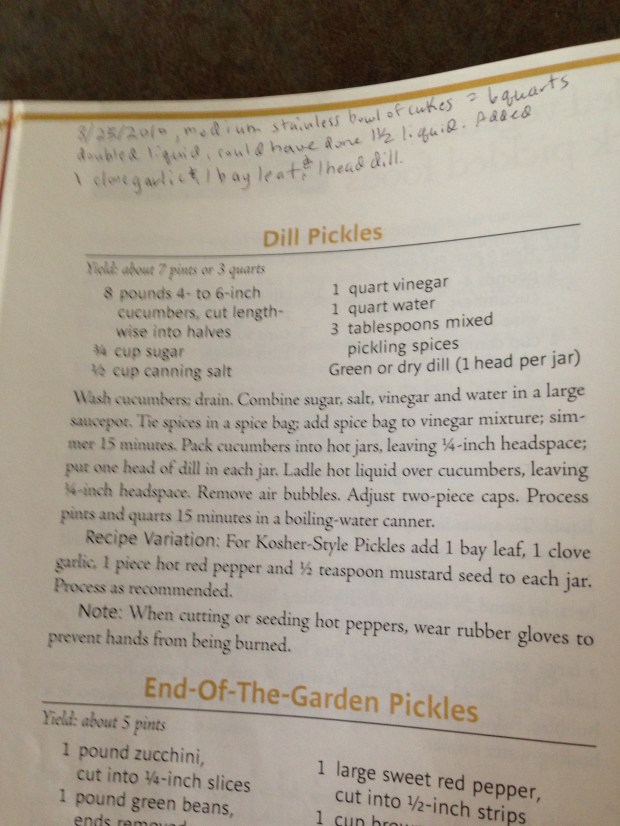 8/25/2010, medium stainless bowl of cukes = 6 quarts
doubled liquid, could have done 1½ liquid. Added
1 clove garlic & 1 bay leaf & 1 head dill.
Dill Pickles
Yield: about 7 pints or 3 quarts
8 pounds 4- to 6-inch
cucumbers, cut length-
wise into halves
¾ cup sugar
½ cup canning salt
1 quart vinegar
1 quart water
3 tablespoons mixed
pickling spices
Green or dry dill (1 head per jar)
Wash cucumbers; drain. Combine sugar, salt, vinegar and water in a large
saucepot. Tie spices in a spice bag; add spice bag to vinegar mixture; sim-
mer 15 minutes. Pack cucumbers into hot jars, leaving ¼-inch headspace;
put one head of dill in each jar. Ladle hot liquid over cucumbers, leaving
¼-inch headspace. Remove air bubbles. Adjust two-piece caps. Process
pints and quarts 15 minutes in a boiling-water canner.
Recipe Variation: For Kosher-Style Pickles add 1 bay leaf, 1 clove
garlic, 1 piece hot red pepper and ½ teaspoon mustard seed to each jar.
Process as recommended.
Note: When cutting or seeding hot peppers, wear rubber gloves to
prevent hands from being burned.
End-Of-The-Garden Pickles
Yield: about 5 pints
1 pound zucchini,
cut into ¼-inch slices
1 pound green beans,
ends removed
1 large sweet red pepper,
cut into ½-inch strips
1 cup brow